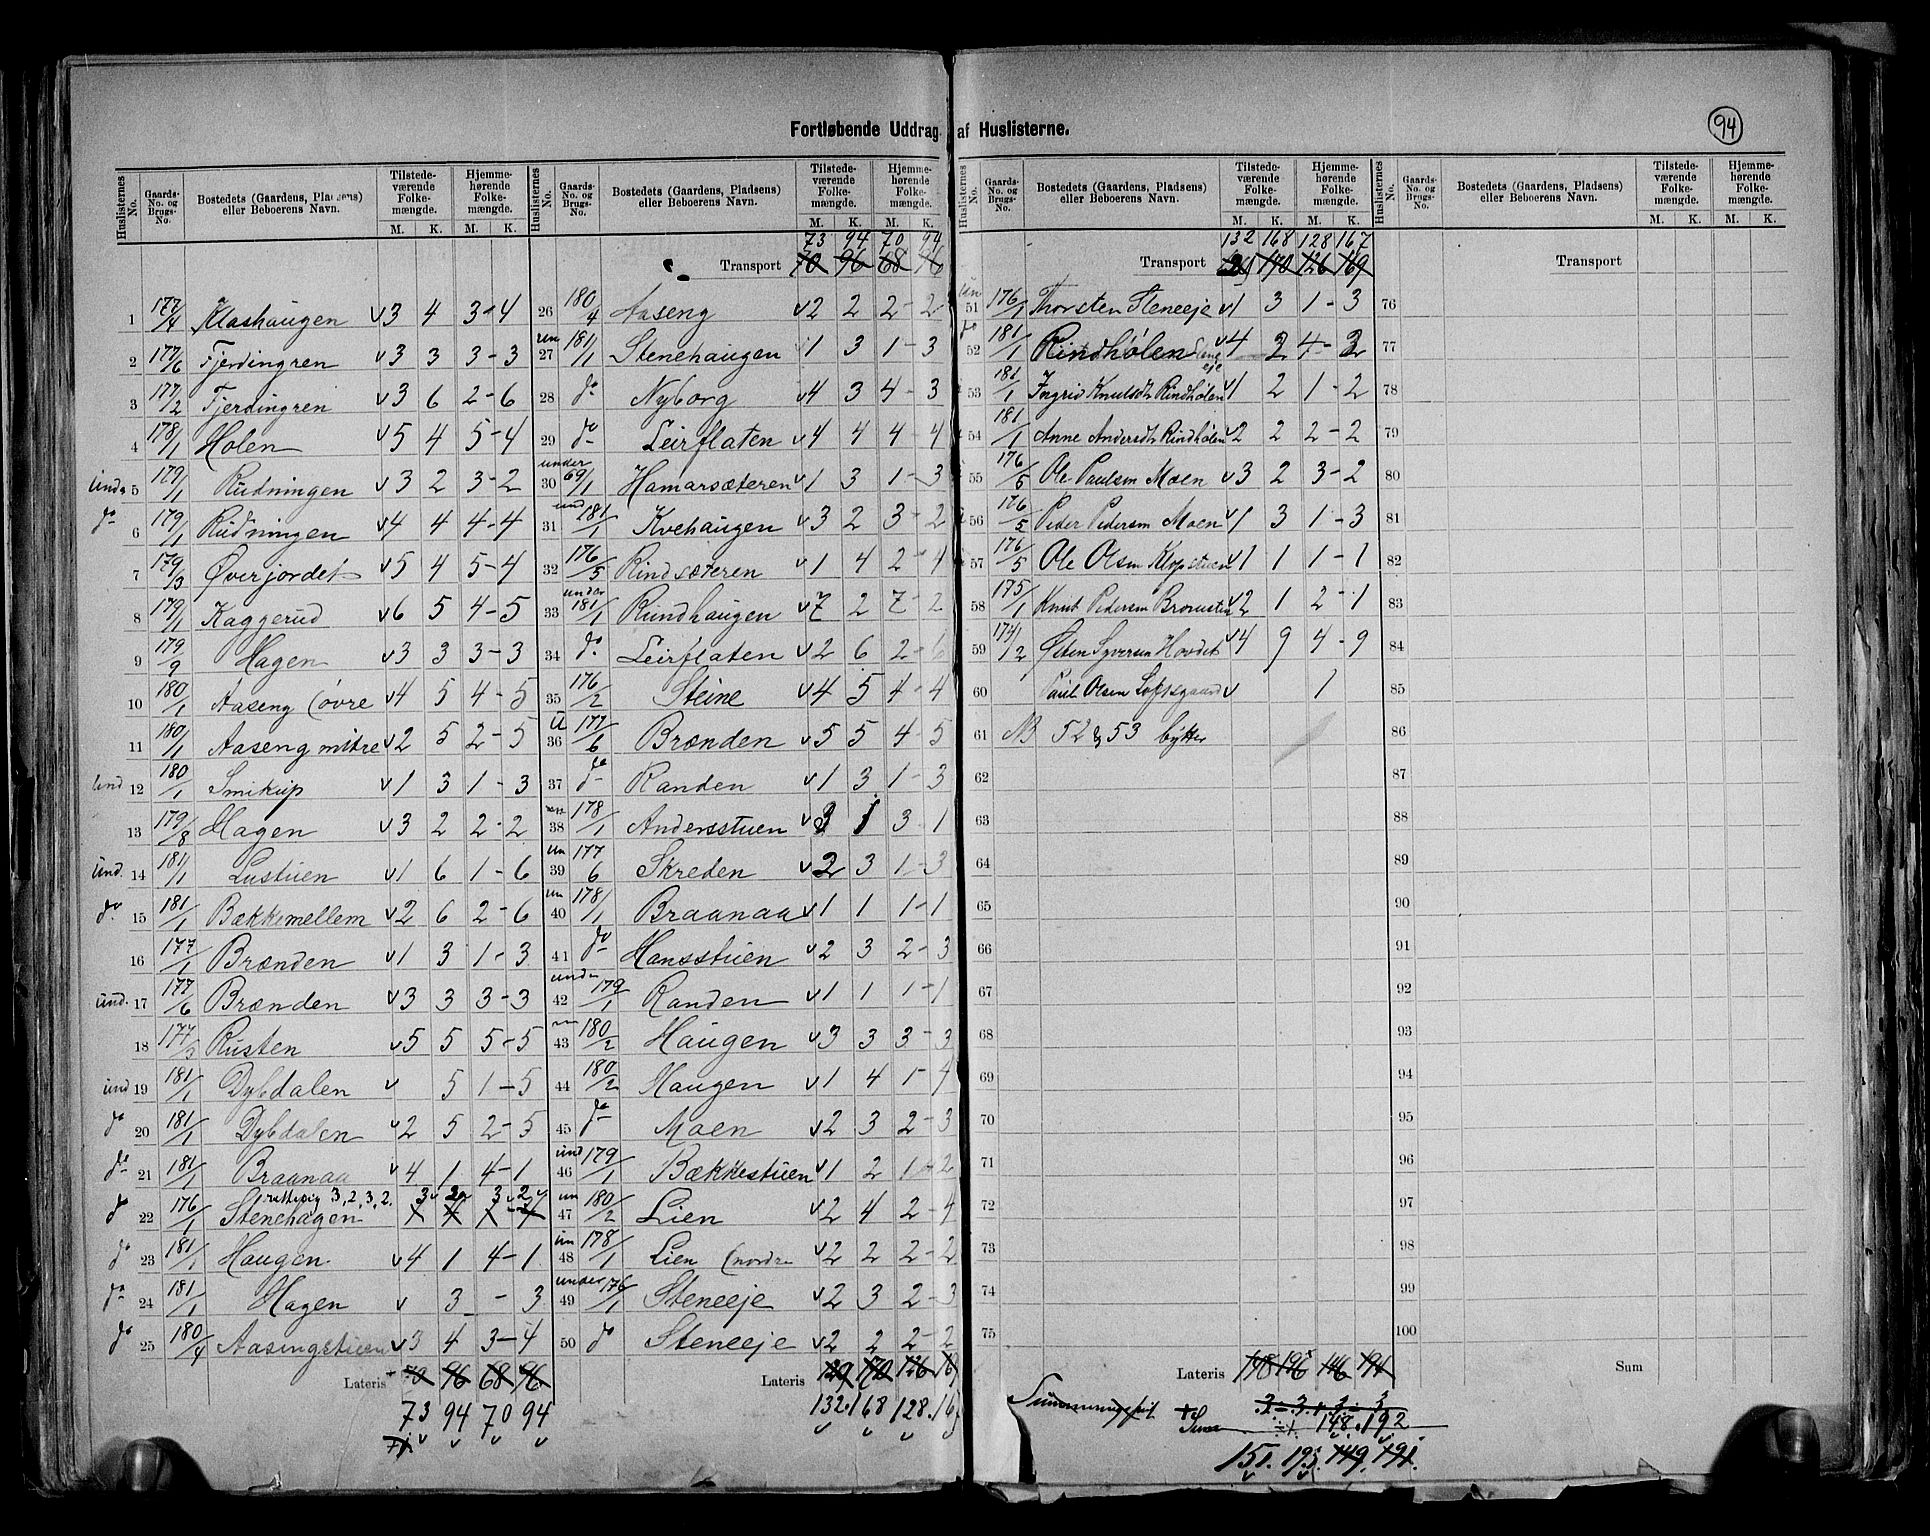 94
Fortløbende Uddrag af Huslisterne.
Huslisternes No. | Gaards-No. og Brugs-No. | Bostedets (Gaardens, Pladsens) eller Beboerens Navn. | Tilstedeværende Folkemængde. M. K. | Hjemmehørende Folkemængde. M. K.
1 177/4 Klashaugen v 3 4 3-4
2 177/6 Fjerdingren v 3 3 3-3
3 177/2 Fjerdingren v 3 6 2-6
4 178/1 Holen v 5 4 5-4
5 179/1 Rudningen v 3 2 3-2
do 6 179/1 Rudningen v 4 4 4-4
7 179/3 Øverjordet v 5 4 5-4
8 179/1 Kaggerud v 6 5 4-5
9 179/9 Hagen v 3 3 3-3
10 180/1 Aaseng (øvre v 4 5 4-5
11 180/1 Aaseng mitre v 2 5 2-5
und 12 180/1 Smikup v 1 3 1-3
13 179/8 Hagen v 3 2 2-2
und. 14 181/1 Lustuen v 1 6 1-6
do 15 181/1 Bækkemellem v 2 6 2-6
16 177/1 Brænden v 1 3 1-3
und. 17 177/6 Brænden v 3 3 3-3
18 177/3 Rusten v 5 5 5-5
und 19 181/1 Dybdalen v 5 1-5
do 20 181/1 Dybdalen v 2 5 2-5
do 21 181/1 Braanaa v 4 1 4-1
3, 2, 3, 2. 3 2 3 2
do 22 176/1 Stenehagen
do 23 181/1 Haugen v 4 1 4-1
do 24 181/1 Hagen v 3 - 3
do 25 180/4 Aasengstuen v 3 4 3-4
Lateris 70 96 68 96
73 94 70 94
71
Huslisternes No. | Gaards-No. og Brugs-No. | Bostedets (Gaardens, Pladsens) eller Beboerens Navn. | Tilstedeværende Folkemængde. M. K. | Hjemmehørende Folkemængde. M. K.
73 94 70 94
Transport 70 96 68 96
26 180/4 Aaseng v 2 2 2-2
un 27 181/1 Stenehaugen v 1 3 1-3
28 do Nyborg v 4 3 4-3
29 do Leirflaten v 4 4 4-4
under 30 69/1 Hamarsæteren v 1 3 1-3
und 31 181/1 Kvehaugen v 3 2 3-2
32 176/5 Rindsæteren v 1 4 2-4
under 33 181/1 Rundhaugen v 7 2 7-2
34 do Leirflaten v 2 6 2-6
35 176/2 Steine v 4 5 4-4
U 36 177/6 Brænden v 5 5 4-5
37 do Randen v 1 3 1-3
38 178/1 Andersstuen v 3 1 3 1
un 39 177/6 Skreden v 2 3 1-3
un 40 178/1 Braanaa v 1 1 1-1
41 do Hansstuen v 2 3 2-3
under 42 179/1 Randen v 1 1 1-1
43 180/2 Haugen v 3 3 3-3
44 180/2 Haugen v 1 4 1-4
45 do Moen v 2 3 2-3
und 46 179/1 Bækkestuen v 1 2 1-2
un 47 180/2 Lien v 2 4 2-4
un 48 178/1 Lien (nordre v 2 2 2-2
under 49 176/1 Steneeje v 2 3 2-3
50 do Steneeje v 2 2 2-2
Lateris 129 170 126
132. 168 128. 16
Huslisternes No. | Gaards-No. og Brugs-No. | Bostedets (Gaardens, Pladsens) eller Beboerens Navn. | Tilstedeværende Folkemængde. M. K. | Hjemmehørende Folkemængde. M. K.
132 168 128 167
Transport 170 126 169
51 176/1 Thorsten Steneeje v 1 3 1-3
do 52 181/1 Rindhølen eje v 4 2 4-2
53 181/1 Ingrid Knutsdt Rindhølen v 1 2 1-2
54 181/1 Anne Andersdt Rindhølen v 2 2 2-2
55 176/5 Ole Paulsen Moen v 3 2 3-2
56 176/5 Peder Pedersen Moen v 1 3 1-3
57 176/5 Ole Olsen v 1 1 1-1
58 175/1 Knut Pedersen v 2 1 2-1
59 174/2 Østen Syversen Hovdet v 4 9 4-9
60 Paul Olsen v 1
61 NB 52 & 53 bytter
62
63
64
65
66
67
68
69
70
71
72
73
74
75
Lateris 148 195 146 194
3 - 3 + 3 - 3
148. 192
151. 193. 149. 191.
Huslisternes No. | Gaards-No. og Brugs-No. | Bostedets (Gaardens, Pladsens) eller Beboerens Navn. | Tilstedeværende Folkemængde. M. K. | Hjemmehørende Folkemængde. M. K.
Transport
76
77
78
79
80
81
82
83
84
85
86
87
88
89
90
91
92
93
94
95
96
97
98
99
100
Sum